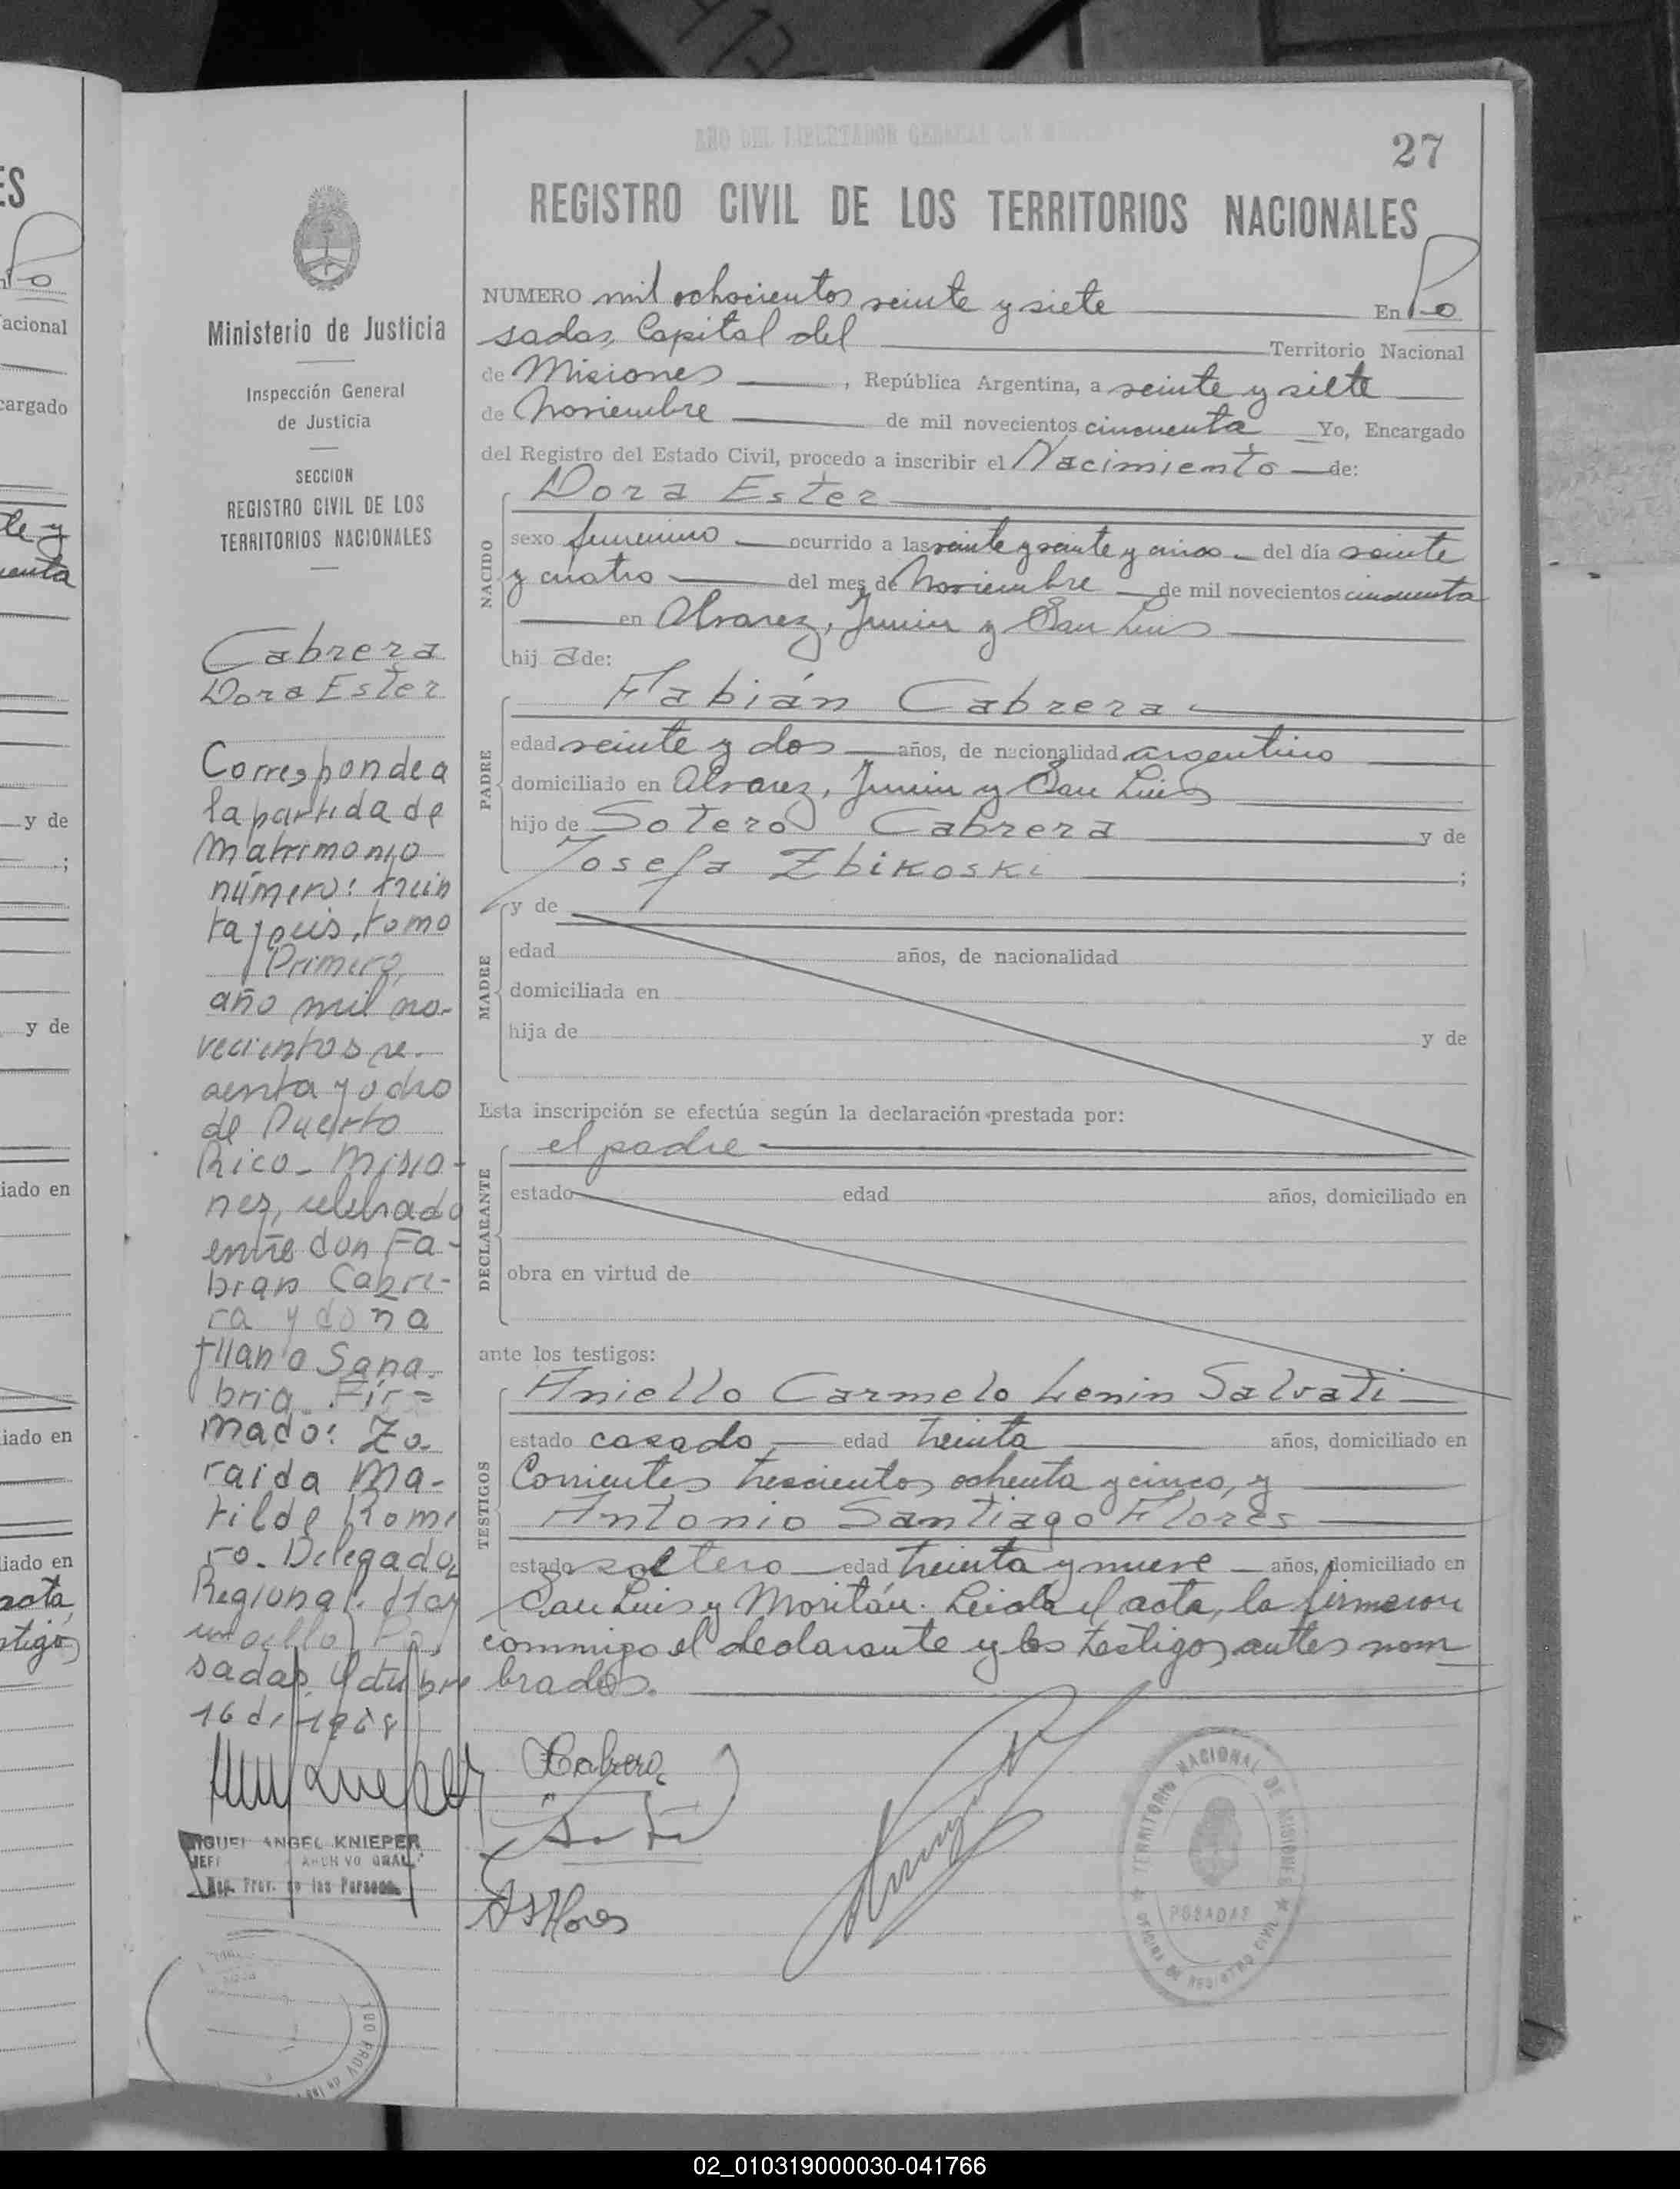 ES
Po
acional
cargado
te y
uenta
y de
y de
iado en
iado en
iado en
acta
stigos
AÑO DEL LIBERTADOR GENERAL SAN
27
REGISTRO CIVIL DE LOS TERRITORIOS NACIONALES
NUMERO mil ochocientos veinte y siete En Po
sadas, Capital del Territorio Nacional
de Misiones, República Argentina, a veinte y siete
de Noviembre de mil novecientos cincuenta Yo, Encargado
del Registro del Estado Civil, procedo a inscribir el Nacimiento de:
NACIDO
Dora Ester
sexo femenino ocurrido a las veinte y veinte y cinco del día veinte
y cuatro del mes de Noviembre de mil novecientos cincuenta
en Alvarez, Junin y San Luis
hij a de:
PADRE
Fabián Cabrera
edad veinte y dos años, de nacionalidad argentino
domiciliado en Alvarez, Junin y San Luis
hijo de Sotero Cabrera y de
Josefa Zbikoski ;
MADRE
y de
edad años, de nacionalidad
domiciliada en
hija de y de
Esta inscripción se efectúa según la declaración prestada por:
DECLARANTE
el padre
estado edad años, domiciliado en
obra en virtud de
ante los testigos:
TESTIGOS
Aniello Carmelo Lenin Salvati
estado casado, edad treinta años, domiciliado en
Corrientes trescientos ochenta y cinco, y
Antonio Santiago Flores
estado soltero edad treinta y nueve años, domiciliado en
San Luis y Moritán. Leida el acta, la firmaron
conmigo el declarante y los testigos antes nom
brados.
FCabrera
ASFlores
TERRITORIO NACIONAL DE MISIONES
POSADAS
OFICINA DE REGISTRO CIVIL
Ministerio de Justicia
Inspección General
de Justicia
SECCION
REGISTRO CIVIL DE LOS
TERRITORIOS NACIONALES
Cabrera
Dora Ester
Corresponde a
la partida de
Matrimonio
número: trein
ta y seis, tomo
Primero,
año mil no-
vecientos se-
senta y ocho
de Puerto
Rico - Misio-
nes, celebrado
entre don Fa-
bian Cabre-
ra y doña
Sana-
bria. Fir-
mado: Zo-
raida Ma-
tilde Rome
ro. Delegada
Regional. Hay
un sello. Po
sadas, Octubre
16 de 1968
MIGUEL ANGEL KNIEPER
JEFE ARCHIVO GRAL.
Reg. Prov. de las Personas
02_010319000030-041766